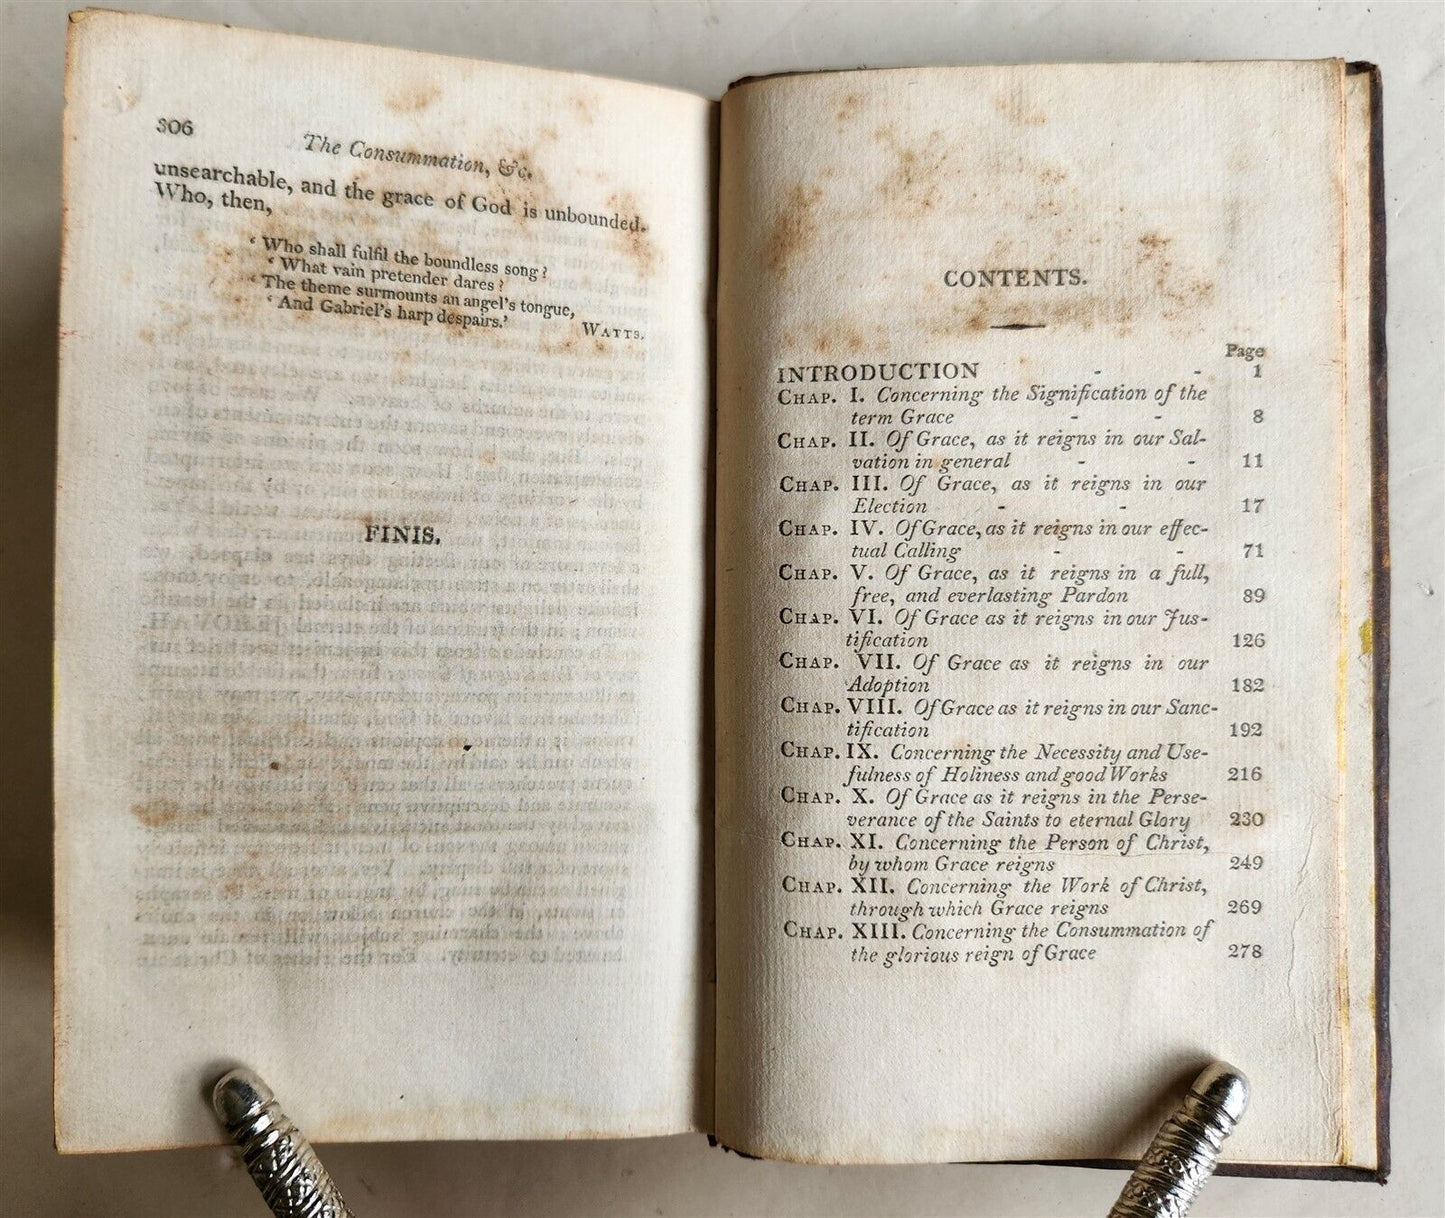 306
The Consummation, &c.
unsearchable, and the grace of God is unbounded.
Who, then,
‘ Who shall fulfil the boundless song?
‘ What vain pretender dares?
‘ The theme surmounts an angel's tongue,
‘ And Gabriel's harp despairs.’
WATTS.
FINIS.
CONTENTS.
Page
INTRODUCTION - - 1
CHAP. I. Concerning the Signification of the
term Grace - - 8
CHAP. II. Of Grace, as it reigns in our Sal-
vation in general - - 11
CHAP. III. Of Grace, as it reigns in our
Election - - 17
CHAP. IV. Of Grace, as it reigns in our effec-
tual Calling - - 71
CHAP. V. Of Grace, as it reigns in a full,
free, and everlasting Pardon 89
CHAP. VI. Of Grace as it reigns in our Jus-
tification 126
CHAP. VII. Of Grace as it reigns in our
Adoption 182
CHAP. VIII. Of Grace as it reigns in our Sanc-
tification 192
CHAP. IX. Concerning the Necessity and Use-
fulness of Holiness and good Works 216
CHAP. X. Of Grace as it reigns in the Perse-
verance of the Saints to eternal Glory 230
CHAP. XI. Concerning the Person of Christ,
by whom Grace reigns 249
CHAP. XII. Concerning the Work of Christ,
through which Grace reigns 269
CHAP. XIII. Concerning the Consummation of
the glorious reign of Grace 278